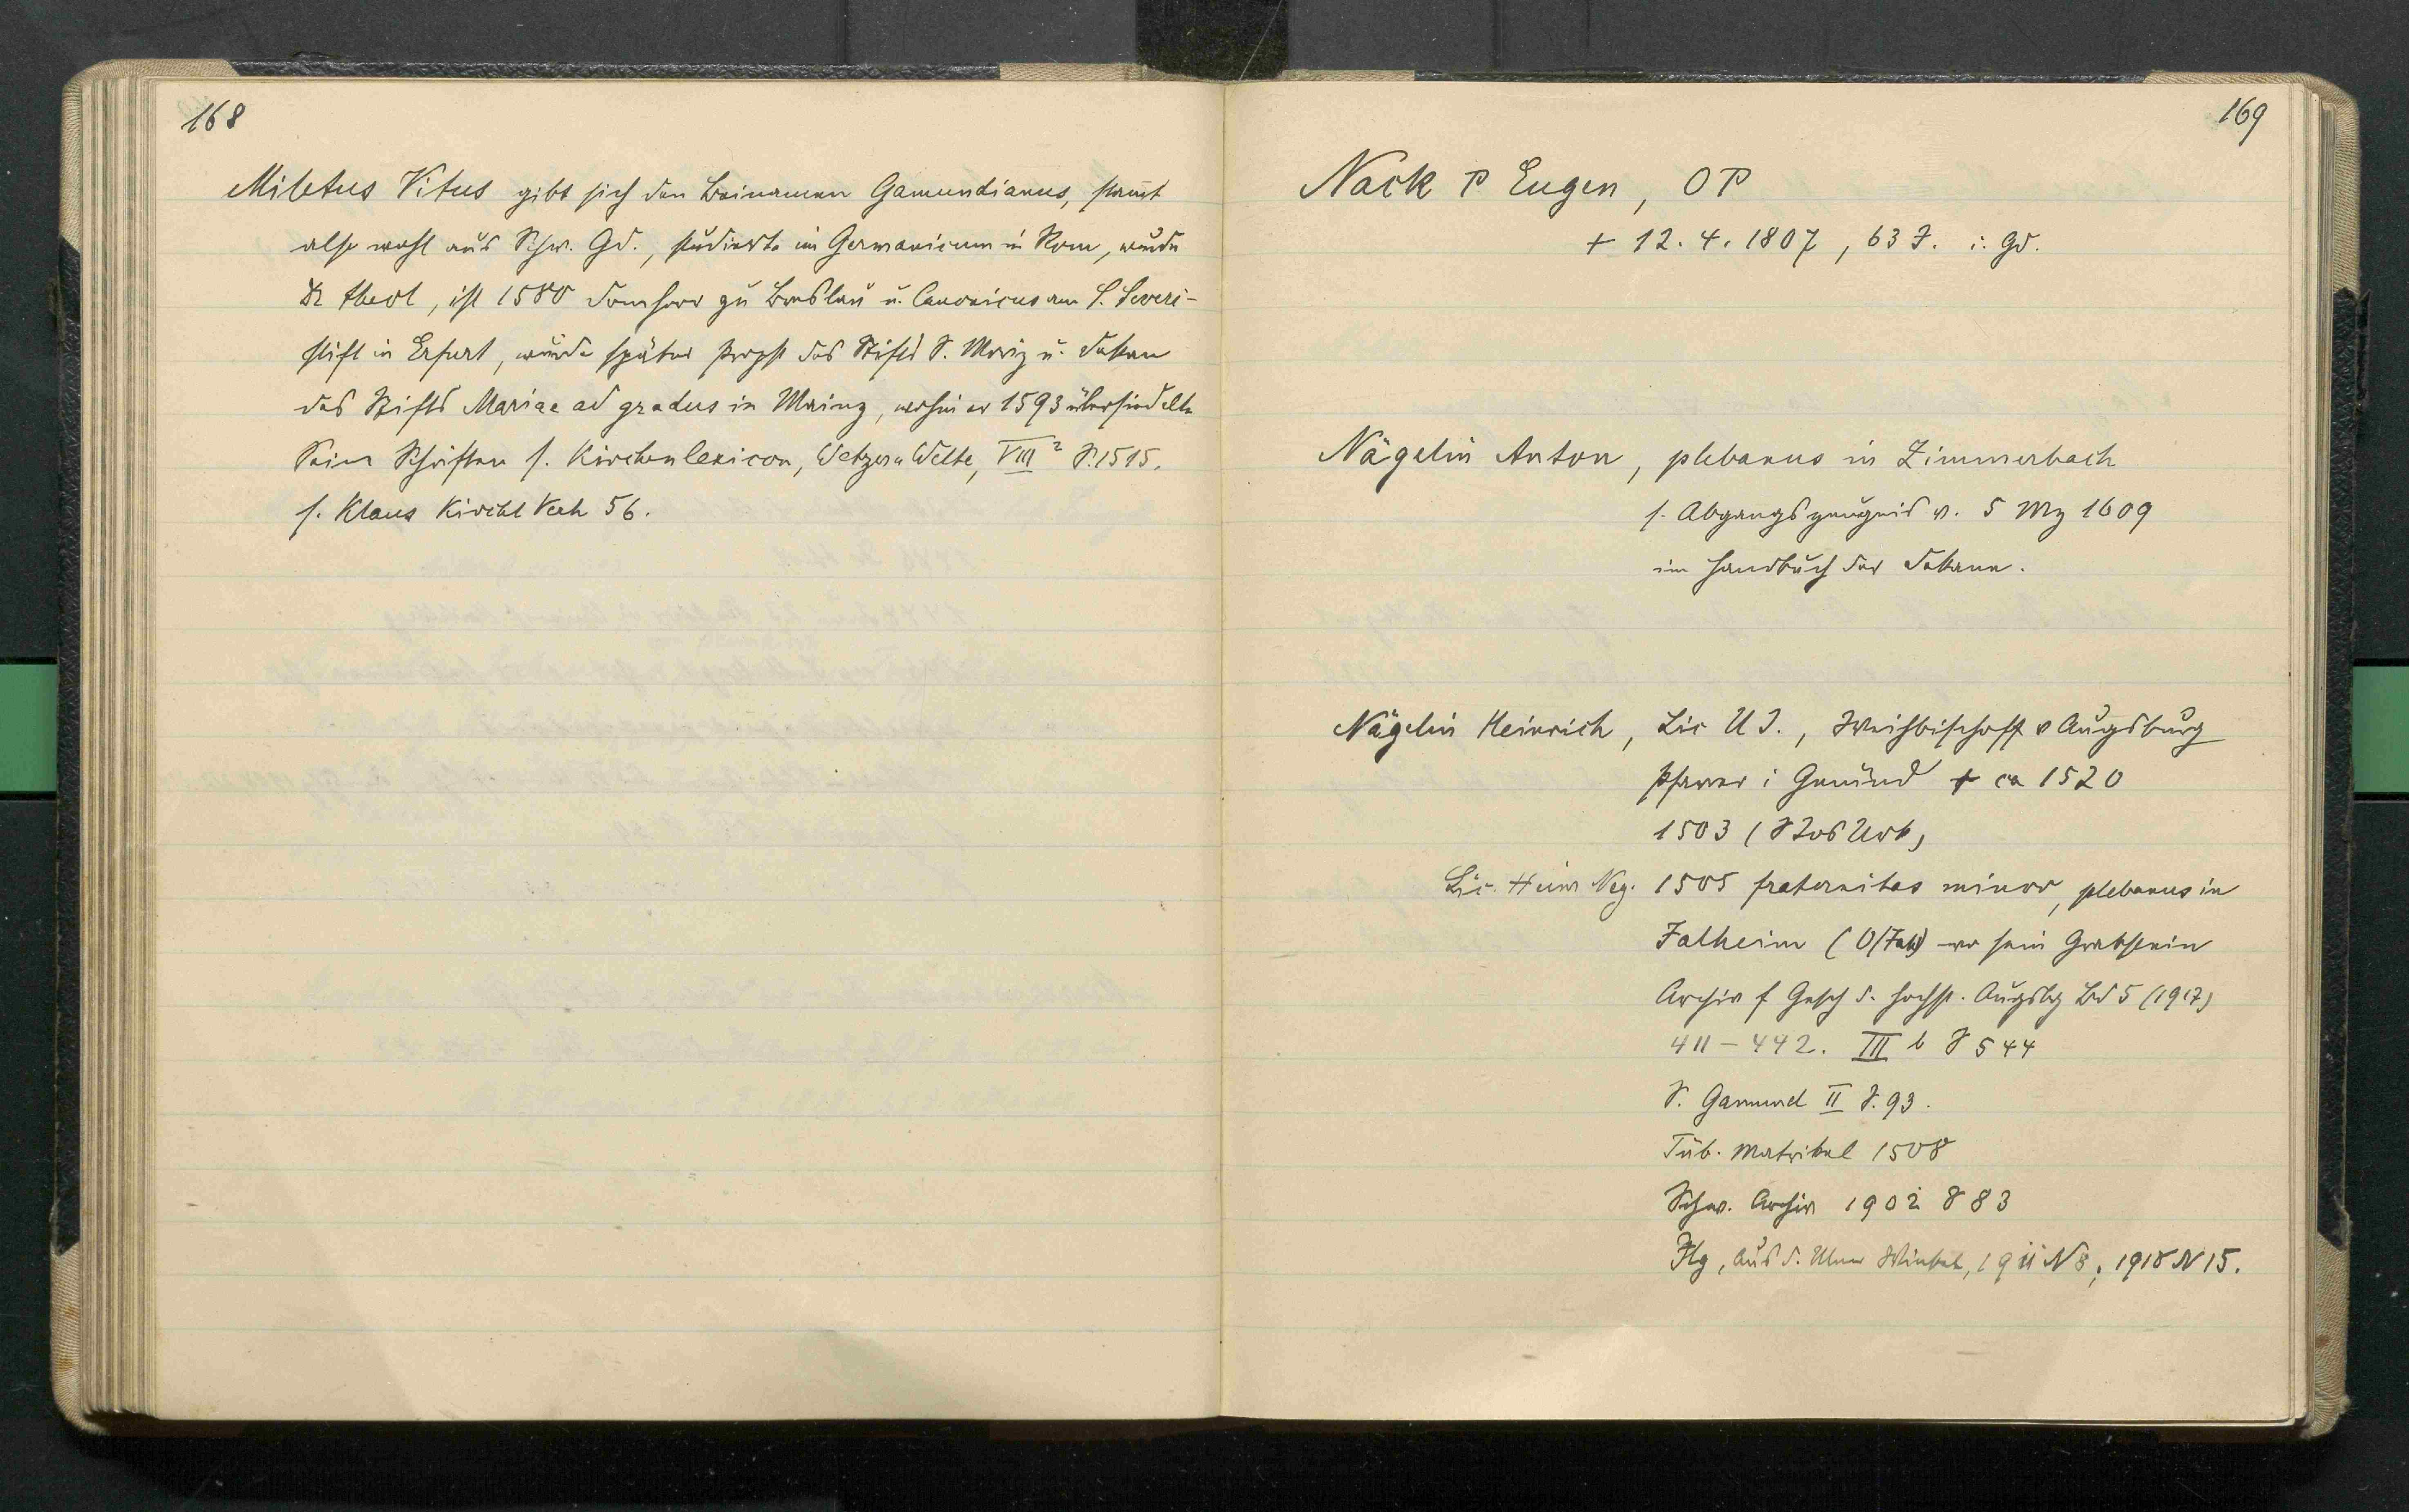 168
Miletus Vitus gibt sich den Beinamen Gamundianus, stam̄t
also wohl aus Schw. Gd., studierte im Germanicum in Rom, wurde
Dr theol, ist 1580 Domherr zu Breslau u. Canonicus am S. Severi-
stift in Erfurt, wurde später Propst des Stifts S. Moriz u. Dekan
des Stifts Mariae ad gradus in Mainz, wohin er 1593 übersiedelte
Seine Schriften s. Kirchenlexicon, Wetzer u Welte, VIII² S. 1515.
s. Klaus Kirchl Verh 56.
169
Nack P Eugen, OP
+ 12. 4. 1807, 63 J. i. Gd.
Nägelin Anton, plebanus in Zimmerbach
s. Abgangszeugnis v. 5 Mz 1609
im Handbuch der Dekane.
Nägelin Heinrich, Lic U J., Weihbischoff v Augsburg
Pfarrer i Gemünd + ca 1520
1503 (Urk)
Lic. Heinr Neg. 1505 fraternitas minor, plebanus in
Falheim (O/Fahl) wo sein Grabstein
Archiv f Gesch d. Hochst. Augsbg Bd 5 (1917)
411 – 442. III b S 544
S. Gamund II S. 93.
Tüb. Matrikel 1508
Schw. Archiv 1902 S 83
Ilg, Aus d. Ulmer Winkel, 1911 N 8; 1918 N 15.